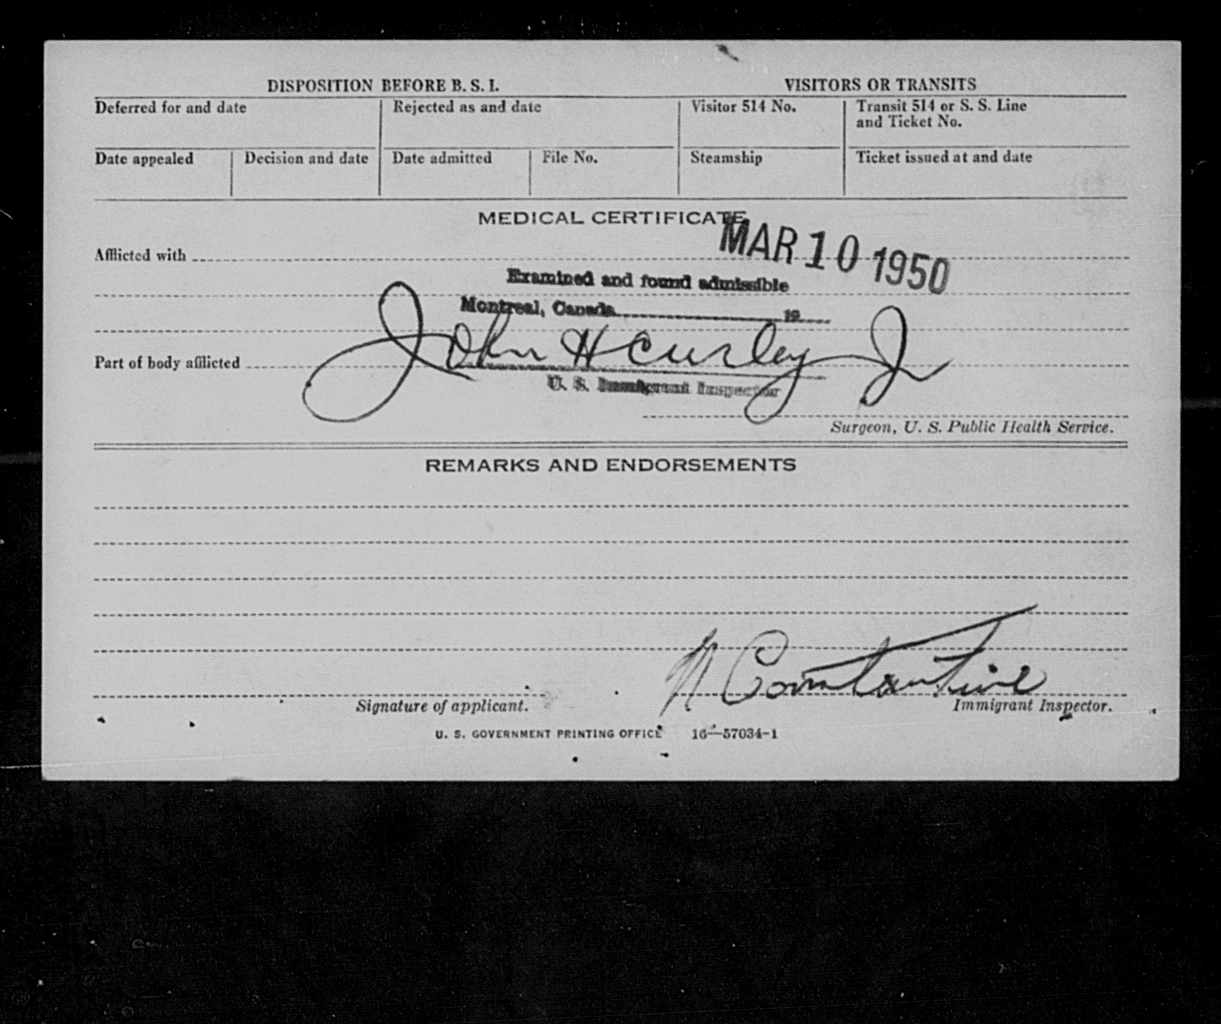 DISPOSITION BEFORE B. S. I.
VISITORS OR TRANSITS
Deferred for and date
Rejected as and date
Visitor 514 No.
Transit 514 or S. S. Line
and Ticket No.
Date appealed
Decision and date
Date admitted
File No.
Steamship
Ticket issued at and date
MEDICAL CERTIFICATE
MAR 10 1950
Afflicted with
Examined and found admissible
Montreal, Canada 19
John H Curley Jr
Part of body afflicted
U. S. Immigrant Inspector
Surgeon, U. S. Public Health Service.
REMARKS AND ENDORSEMENTS
N Constantine
Signature of applicant.
Immigrant Inspector.
U. S. GOVERNMENT PRINTING OFFICE 16—57034-1